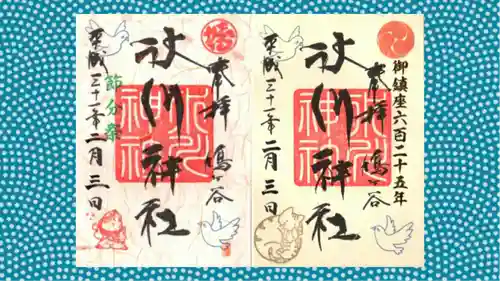 御鎮座六百二十五年
奉拝 鳩ヶ谷
氷川神社
氷川
神社
平成三十一年二月三日
奉拝 鳩ヶ谷
氷川神社
氷川
神社
節分祭
平成三十一年二月三日